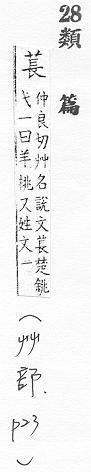 28類篇
萇
仲良切艸名說文萇楚銚
弋一曰羊桃又姓文一
(艸部. p23)